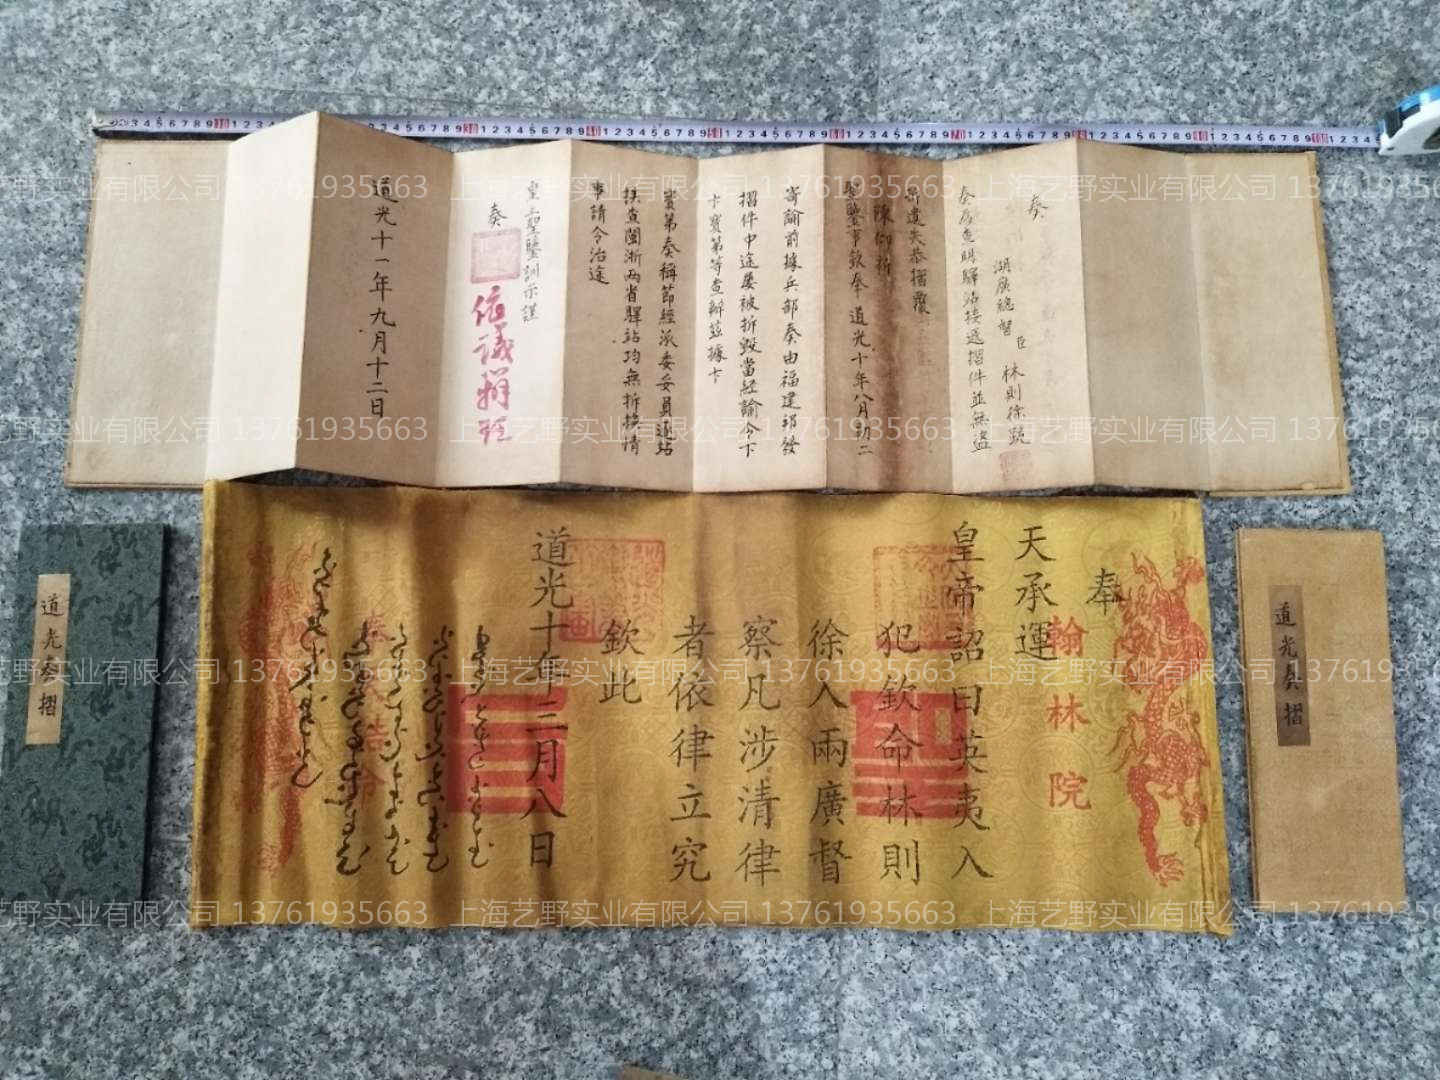 奏
湖廣總督 臣 林則徐跪
奏為查明驛站接遞摺件並無盜
折遺失恭摺覆
陳仰祈
聖鑒事欽奉 道光十年八月初二
寄諭前據兵部奏由福建郡發
摺件中途屢被折毀當經諭令卞
卞寶第等查辦茲據卞
寶第奏稱節經派委妥員逐站
挨查閩浙兩省驛站均無折換情
事請令治途
皇上聖鑒訓示謹
奏
依議
道光十一年九月十二日
翰林院
奉
天承運
皇帝詔曰英夷入
犯欽命林則
徐入兩廣督
察凡涉清律
者依律立究
欽此
道光十年三月八日
奉天誥命
道光奏摺
道光奏摺
上海艺野实业有限公司 13761935663